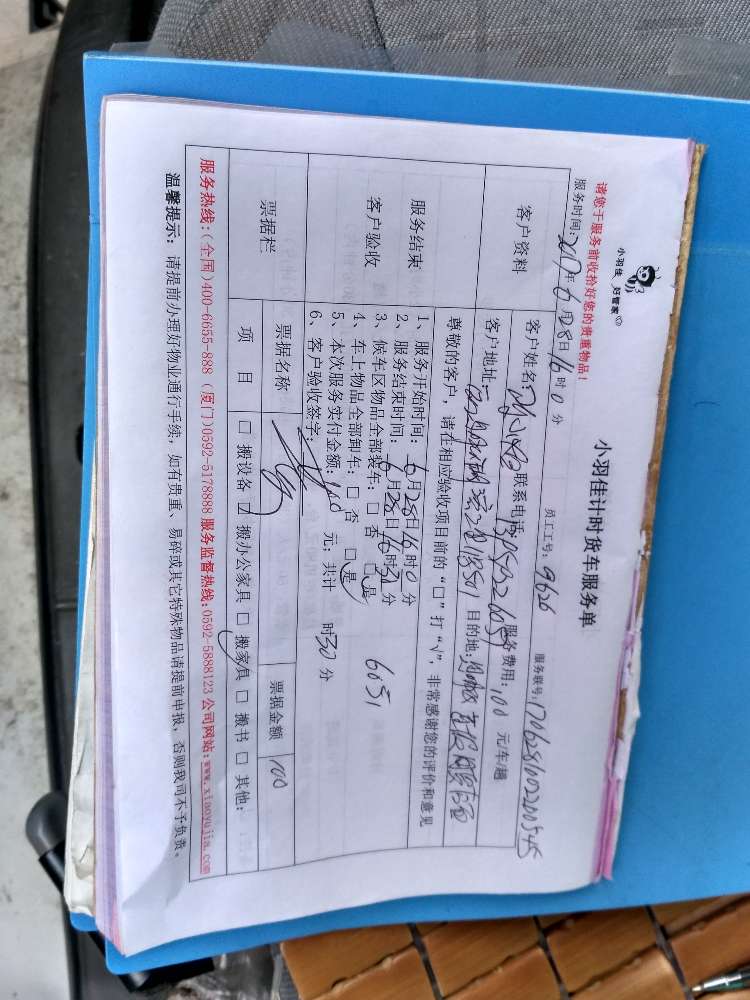 小羽佳 好管家
小羽佳计时货车服务单
请您于服务前收拾好您的贵重物品!
员工工号: 9656 服务联号: 170628160220054S
服务时间: 2017年 6月28日16时0分
客户资料
客户姓名: 联系电话: 服务费用: 100 元/车/趟
客户地址: 目的地:
尊敬的客户, 请在相应验收项目前的 "□" 打 "√", 非常感谢您的评价和意见
服务结束
客户验收
1、服务开始时间: 6月28日16时0分
2、服务结束时间: 6月28日16时31分
3、候车区物品全部装车: □ 否 □是 6051
4、车上物品全部卸车: □ 否 □是
5、本次服务实付金额: 100 元: 共计 时30分
6、客户验收签字:
票据栏 票据名称 票据金额 100
项 目 □ 搬设备 □ 搬办公家具 □ 搬家具 □ 搬书 □ 其他:
服务热线: (全国)400-6655-888 (厦门)0592-5178888 服务监督热线:0592-5888123 公司网站:www.xiaoyujia.com
温馨提示: 请提前办理好物业通行手续, 如有贵重、易碎或其它特殊物品请提前申报, 否则我司不予负责。